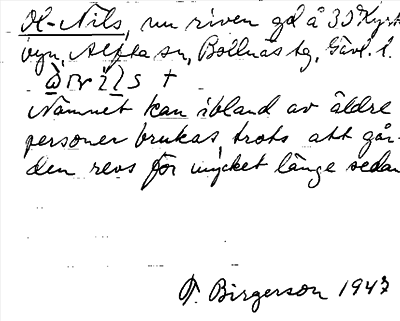 Ol-Nils, nu riven gd å 30 Kyrk
byn, Alfta sn, Bollnäs tg, Gävl. l.
Namnet kan ibland av äldre
personer brukas, trots att går-
den revs för mycket länge sedan
T. Birgerson 1947